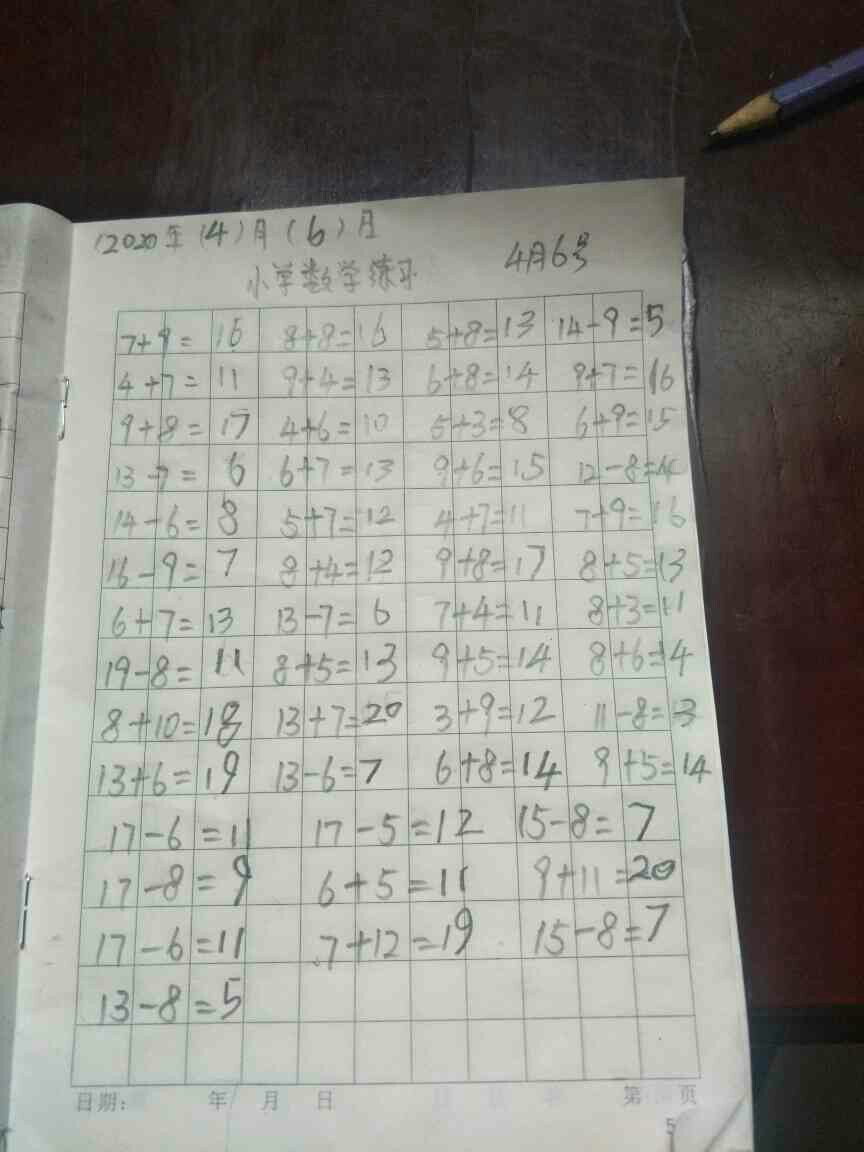 (2020年(4)月(6)日
小学数学练习 4月6号
7+9=16 8+8=16 5+8=13 14-9=5
4+7=11 9+4=13 6+8=14 9+7=16
9+8=17 4+6=10 5+3=8 6+9=15
13-7=6 6+7=13 9+6=15 12-8=4
14-6=8 5+7=12 4+7=11 7+9=16
16-9=7 8+4=12 9+8=17 8+5=13
6+7=13 13-7=6 7+4=11 8+3=11
19-8=11 8+5=13 9+5=14 8+6=14
8+10=18 13+7=20 3+9=12 11-8=3
13+6=19 13-6=7 6+8=14 9+5=14
17-6=11 17-5=12 15-8=7
17-8=9 6+5=11 9+11=20
17-6=11 7+12=19 15-8=7
13-8=5
日期: 年 月 日 第 页
5